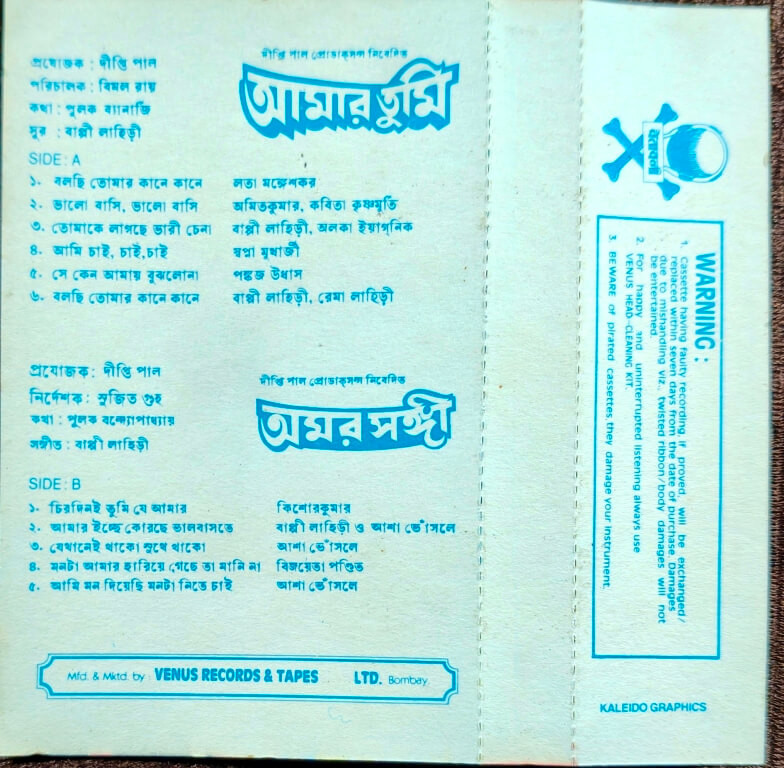 দীপ্তি পাল প্রোডাকসন্স নিবেদিত
আমার তুমি
প্রযোজক : দীপ্তি পাল
পরিচালক : বিমল রায়
কথা : পুলক ব্যানার্জি
সুর : বাপ্পী লাহিড়ী
SIDE : A
১. বলছি তোমার কানে কানে লতা মঙ্গেশকর
২. ভালো বাসি, ভালো বাসি অমিতকুমার, কবিতা কৃষ্ণমূর্তি
৩. তোমাকে লাগছে ভারী চেনা বাপ্পী লাহিড়ী, অলকা ইয়াগ্‌নিক
৪. আমি চাই, চাই, চাই স্বপ্না মুখার্জী
৫. সে কেন আমায় বুঝলোনা পঙ্কজ উধাস
৬. বলছি তোমার কানে কানে বাপ্পী লাহিড়ী, রেমা লাহিড়ী
দীপ্তি পাল প্রোডাকসন্স নিবেদিত
অমর সঙ্গী
প্রযোজক : দীপ্তি পাল
নির্দেশক : সুজিত গুহ
কথা : পুলক বন্দ্যোপাধ্যায়
সঙ্গীত : বাপ্পী লাহিড়ী
SIDE : B
১. চিরদিনই তুমি যে আমার কিশোরকুমার
২. আমার ইচ্ছে কোরছে ভালবাসতে বাপ্পী লাহিড়ী ও আশা ভোঁসলে
৩. যেখানেই থাকো সুখে থাকো আশা ভোঁসলে
৪. মনটা আমার হারিয়ে গেছে তা মানি না বিজয়েতা পণ্ডিত
৫. আমি মন দিয়েছি মনটা নিতে চাই আশা ভোঁসলে
Mfd. & Mktd. by VENUS RECORDS & TAPES LTD. Bombay.
WARNING :
1. Cassette having faulty recording if proved, will be exchanged/
replaced within seven days from the date of purchase. Damages
due to mishandling viz., twisted ribbon/body damages will not
be entertained.
2. For happy and uninterrupted listening always use
VENUS HEAD-CLEANING KIT.
3. BEWARE of pirated cassettes, they damage your instrument.
KALEIDO GRAPHICS